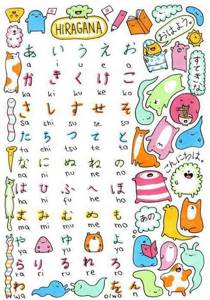 HIRAGANA
あ い う え お
a i u e o
か き く け こ
ka ki ku ke ko
さ し す せ そ
sa shi su se so
た ち つ て と
ta chi tsu te to
な に ぬ ね の
na ni nu ne no
は ひ ふ へ ほ
ha hi fu he ho
ま み む め も
ma mi mu me mo
や ゆ よ
ya yu yo
ら り る れ ろ
ra ri ru re ro
わ を ん
おはよう。
こんにちは。
あの